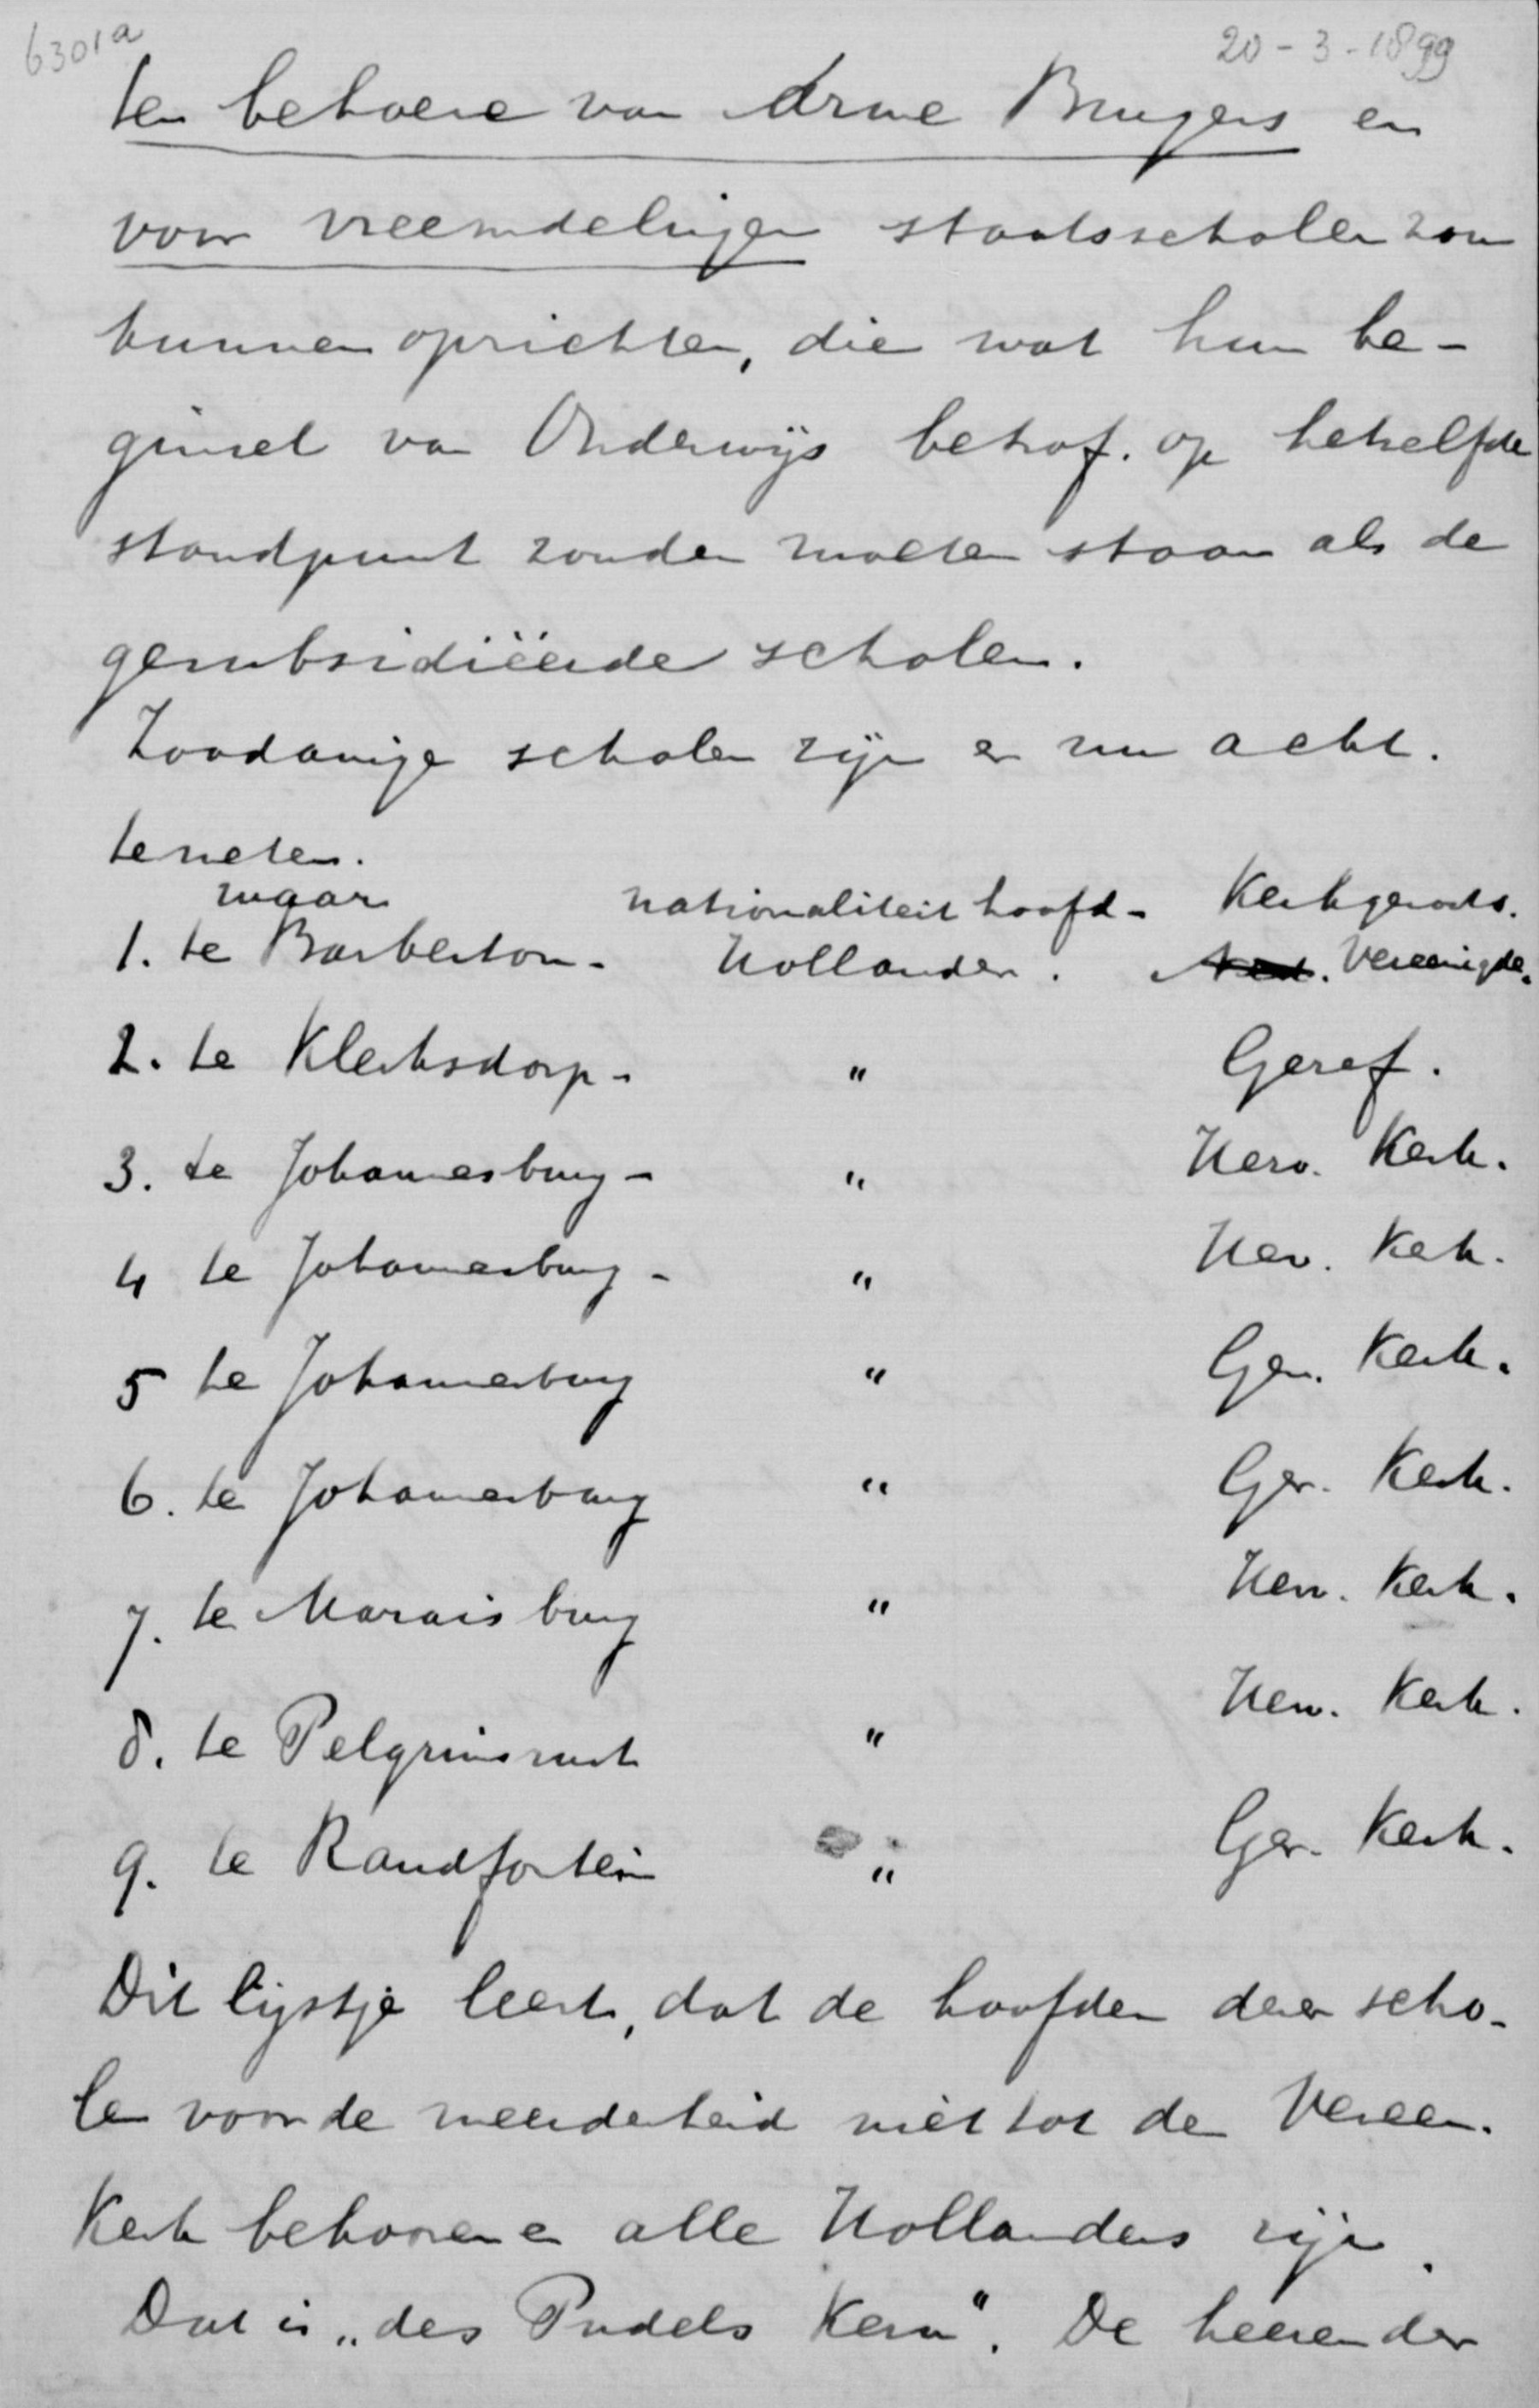 6301a 20-3-1899
ten behoeve van Arme Burgers en
voor vreemdelingen staatsscholen zou
kunnen oprichten, die wat hun be-
ginsel van Onderwijs betrof. op hetzelfde
standpunt zouden moeten staan als de
gesubsidiëerde scholen.
Zoodanige scholen zijn er nu acht.
te weten.
waar nationaliteit hoofd- Kerkgenoots.
1. te Barberton- Hollander. Ned. Vereenigde.
2. te Klerksdorp- " Geref.
3. te Johannesburg- " Herv. Kerk.
4 te Johannesburg- " Herv. Kerk.
5 te Johannesburg " Ger. Kerk.
6. te Johannesburg " Ger. Kerk.
7. te Maraisburg " Herv. Kerk.
8. te Pelgrimsrust " Herv. Kerk.
9. te Randfontein " Ger. Kerk.
Dit lijstje leert, dat de hoofden dezer scho-
len voor de meerderheid niet tot de Vereen.
Kerk behooren en alle Hollanders zijn.
Dat is „des Pudels Kern". De heeren der